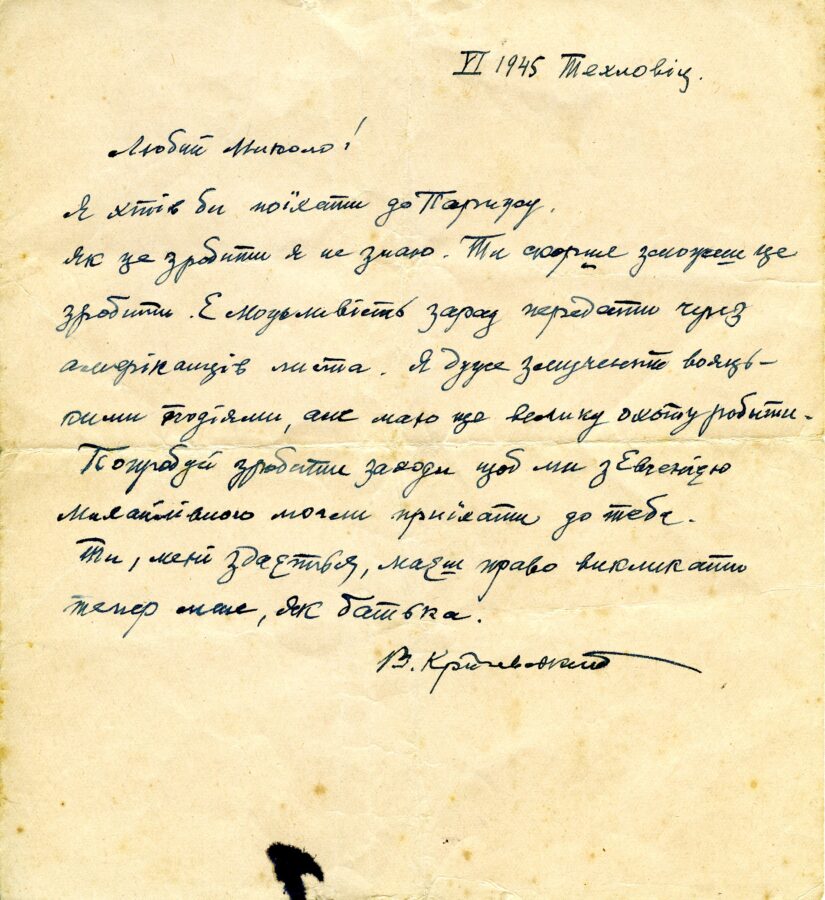 VI 1945 Техловіц.
Любий Миколо!
Я хтів би поїхати до Парижу.
Як це зробити я не знаю. Ти скорше зможеш це
зробити. Є можливість зараз передати через
амеріканців листа. Я дуже змучений вояць-
кими подіями, але маю ще велику охоту робити.
Попробуй зробити заходи щоб ми з Євгенією
Михайлівною могли приїхати до тебе.
Ти, мені здається, маєш право викликати
тепер мене, як батька.
В. Кричевський